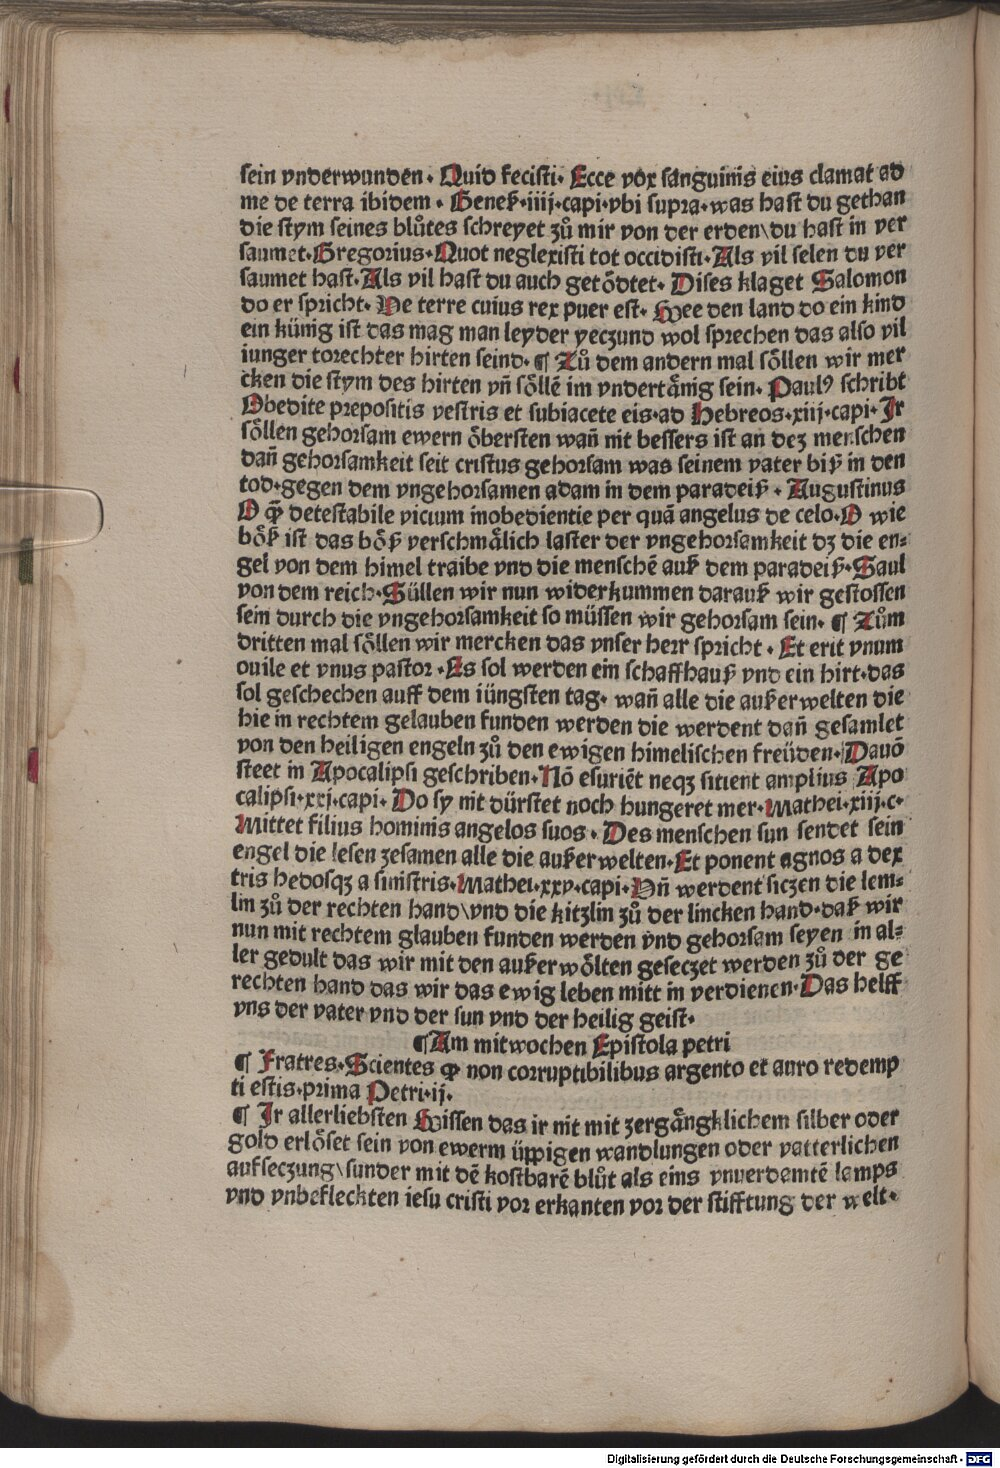 sein vnderwunden. Quid fecisti. Ecce vox sanguinis eius clamat ad
me de terra ibidem. Geneß.iiij.capi.vbi supra.was hast du gethan
die stym seines blůtes schreyet zů mir von der erden\du hast in ver
saumet.Gregorius.Quot neglexisti tot occidisti.Als vil selen du ver
saumet hast.Als vil hast du auch getödtet. Dises klaget Salomon
do er spricht. Ve terre cuius rex puer est. Wee den land do ein kind
ein künig ist das mag man leyder yeczund wol sprechen das also vil
iunger torechter hirten seind. ¶ Zů dem andern mal söllen wir mer
cken die stym des hirten vñ söllē im vndertänig sein. Paulꝰ schribt
Obedite prepositis vestris et subiacete eis.ad Hebreos.xiij.capi.Jr
söllen gehorsam ewern öbersten wañ nit bessers ist an dez menschen
dañ gehorsamkeit seit cristus gehorsam was seinem vater biß in den
tod.gegen dem vngehorsamen adam in dem paradeiß. Augustinus
O ꝙ̃ detestabile vicium inobedientie per quā angelus de celo.O wie
böß ist das böß verschmälich laster der vngehorsamkeit dz die en⸗
gel von dem himel traibe vnd die menschē auß dem paradeiß.Saul
von dem reich.Süllen wir nun widerkummen darauß wir gestossen
sein durch die vngehorsamkeit so müssen wir gehorsam sein. ¶ Zům
dritten mal söllen wir mercken das vnser herr spricht. Et erit vnum
ouile et vnus pastor.Es sol werden ein schaffhauß vnd ein hirt.das
sol geschechen auff dem iüngsten tag. wañ alle die außerwelten die
hie in rechtem gelauben funden werden die werdent dañ gesamlet
von den heiligen engeln zů den ewigen himelischen freüden.Dauō
steet in Apocalipsi geschriben.Nō esuriēt neqz sitient amplius Apo
calipsi.xxj.capi. Do sy nit dürstet noch hungeret mer.Mathei.xiij.c.
Mittet filius hominis angelos suos. Des menschen sun sendet sein
engel die lesen zesamen alle die außerwelten.Et ponent agnos a dex
tris hedosqz a sinistris.Mathei.xxv.capi.Vñ werdent siczen die lem⸗
lin zů der rechten hand\vnd die kitzlin zů der lincken hand.daß wir
nun mit rechtem glauben funden werden vnd gehorsam seyen in al⸗
ler gedult das wir mit den außerwölten geseczet werden zů der ge
rechten hand das wir das ewig leben mitt in verdienen.Das helff
vns der vater vnd der sun vnd der heilig geist.
¶Am mitwochen Epistola petri
¶ Fratres.Scientes ꝙ non corruptibilibus argento et auro redemp
ti estis.prima Petri.ij.
¶ Jr allerliebsten Wissen das ir nit mit zergängklichem silber oder
gold erlöset sein von ewerm üppigen wandlungen oder vatterlichen
aufseczung\sunder mit dē kostbarē blůt als eins vnuerdamtē lamps
vnd vnbefleckten iesu cristi vor erkanten vor der stifftung der welt.
Digitalisierung gefördert durch die Deutsche Forschungsgemeinschaft - DFG